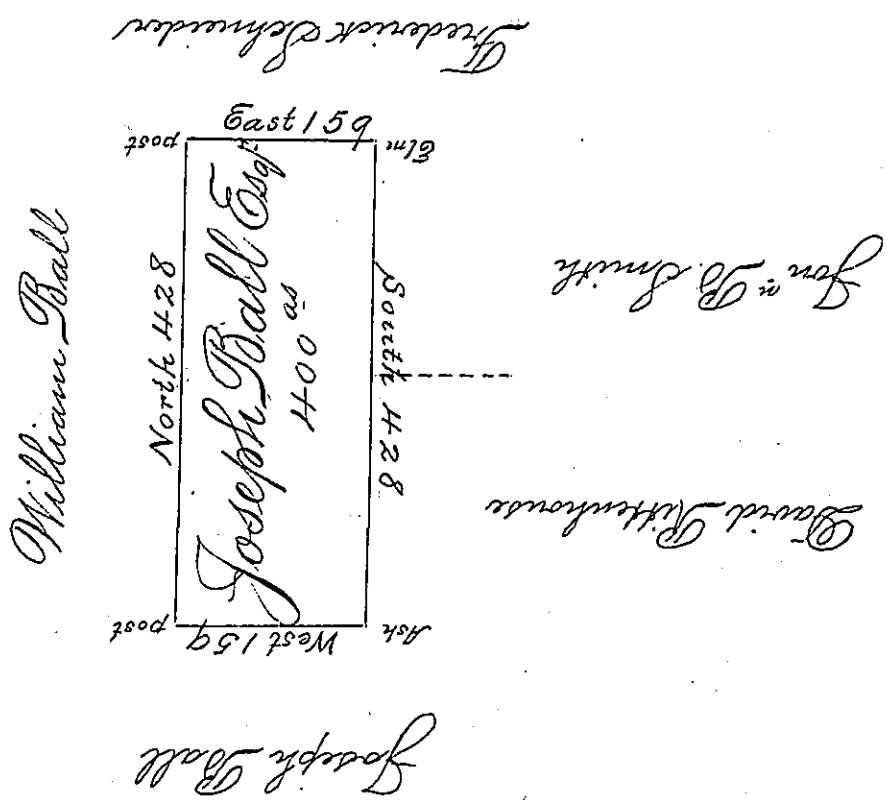 Frederick Schneider
East 159
post
Elm
William Ball
North 428
Joseph Ball Esqr
400 as
South 428
Jonn B. Smith
David Rittenhouse
post
West 159
Ash
Joseph Ball